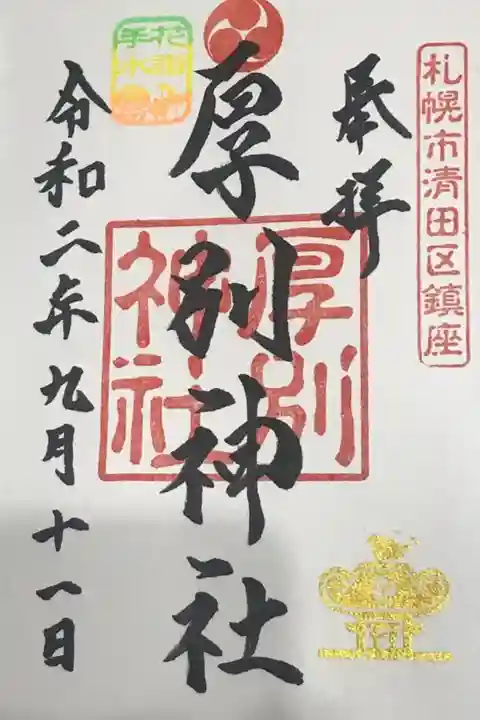 札幌市清田区鎮座
奉拝
厚別神社
厚別
神社
令和二年九月十一日
花
手水